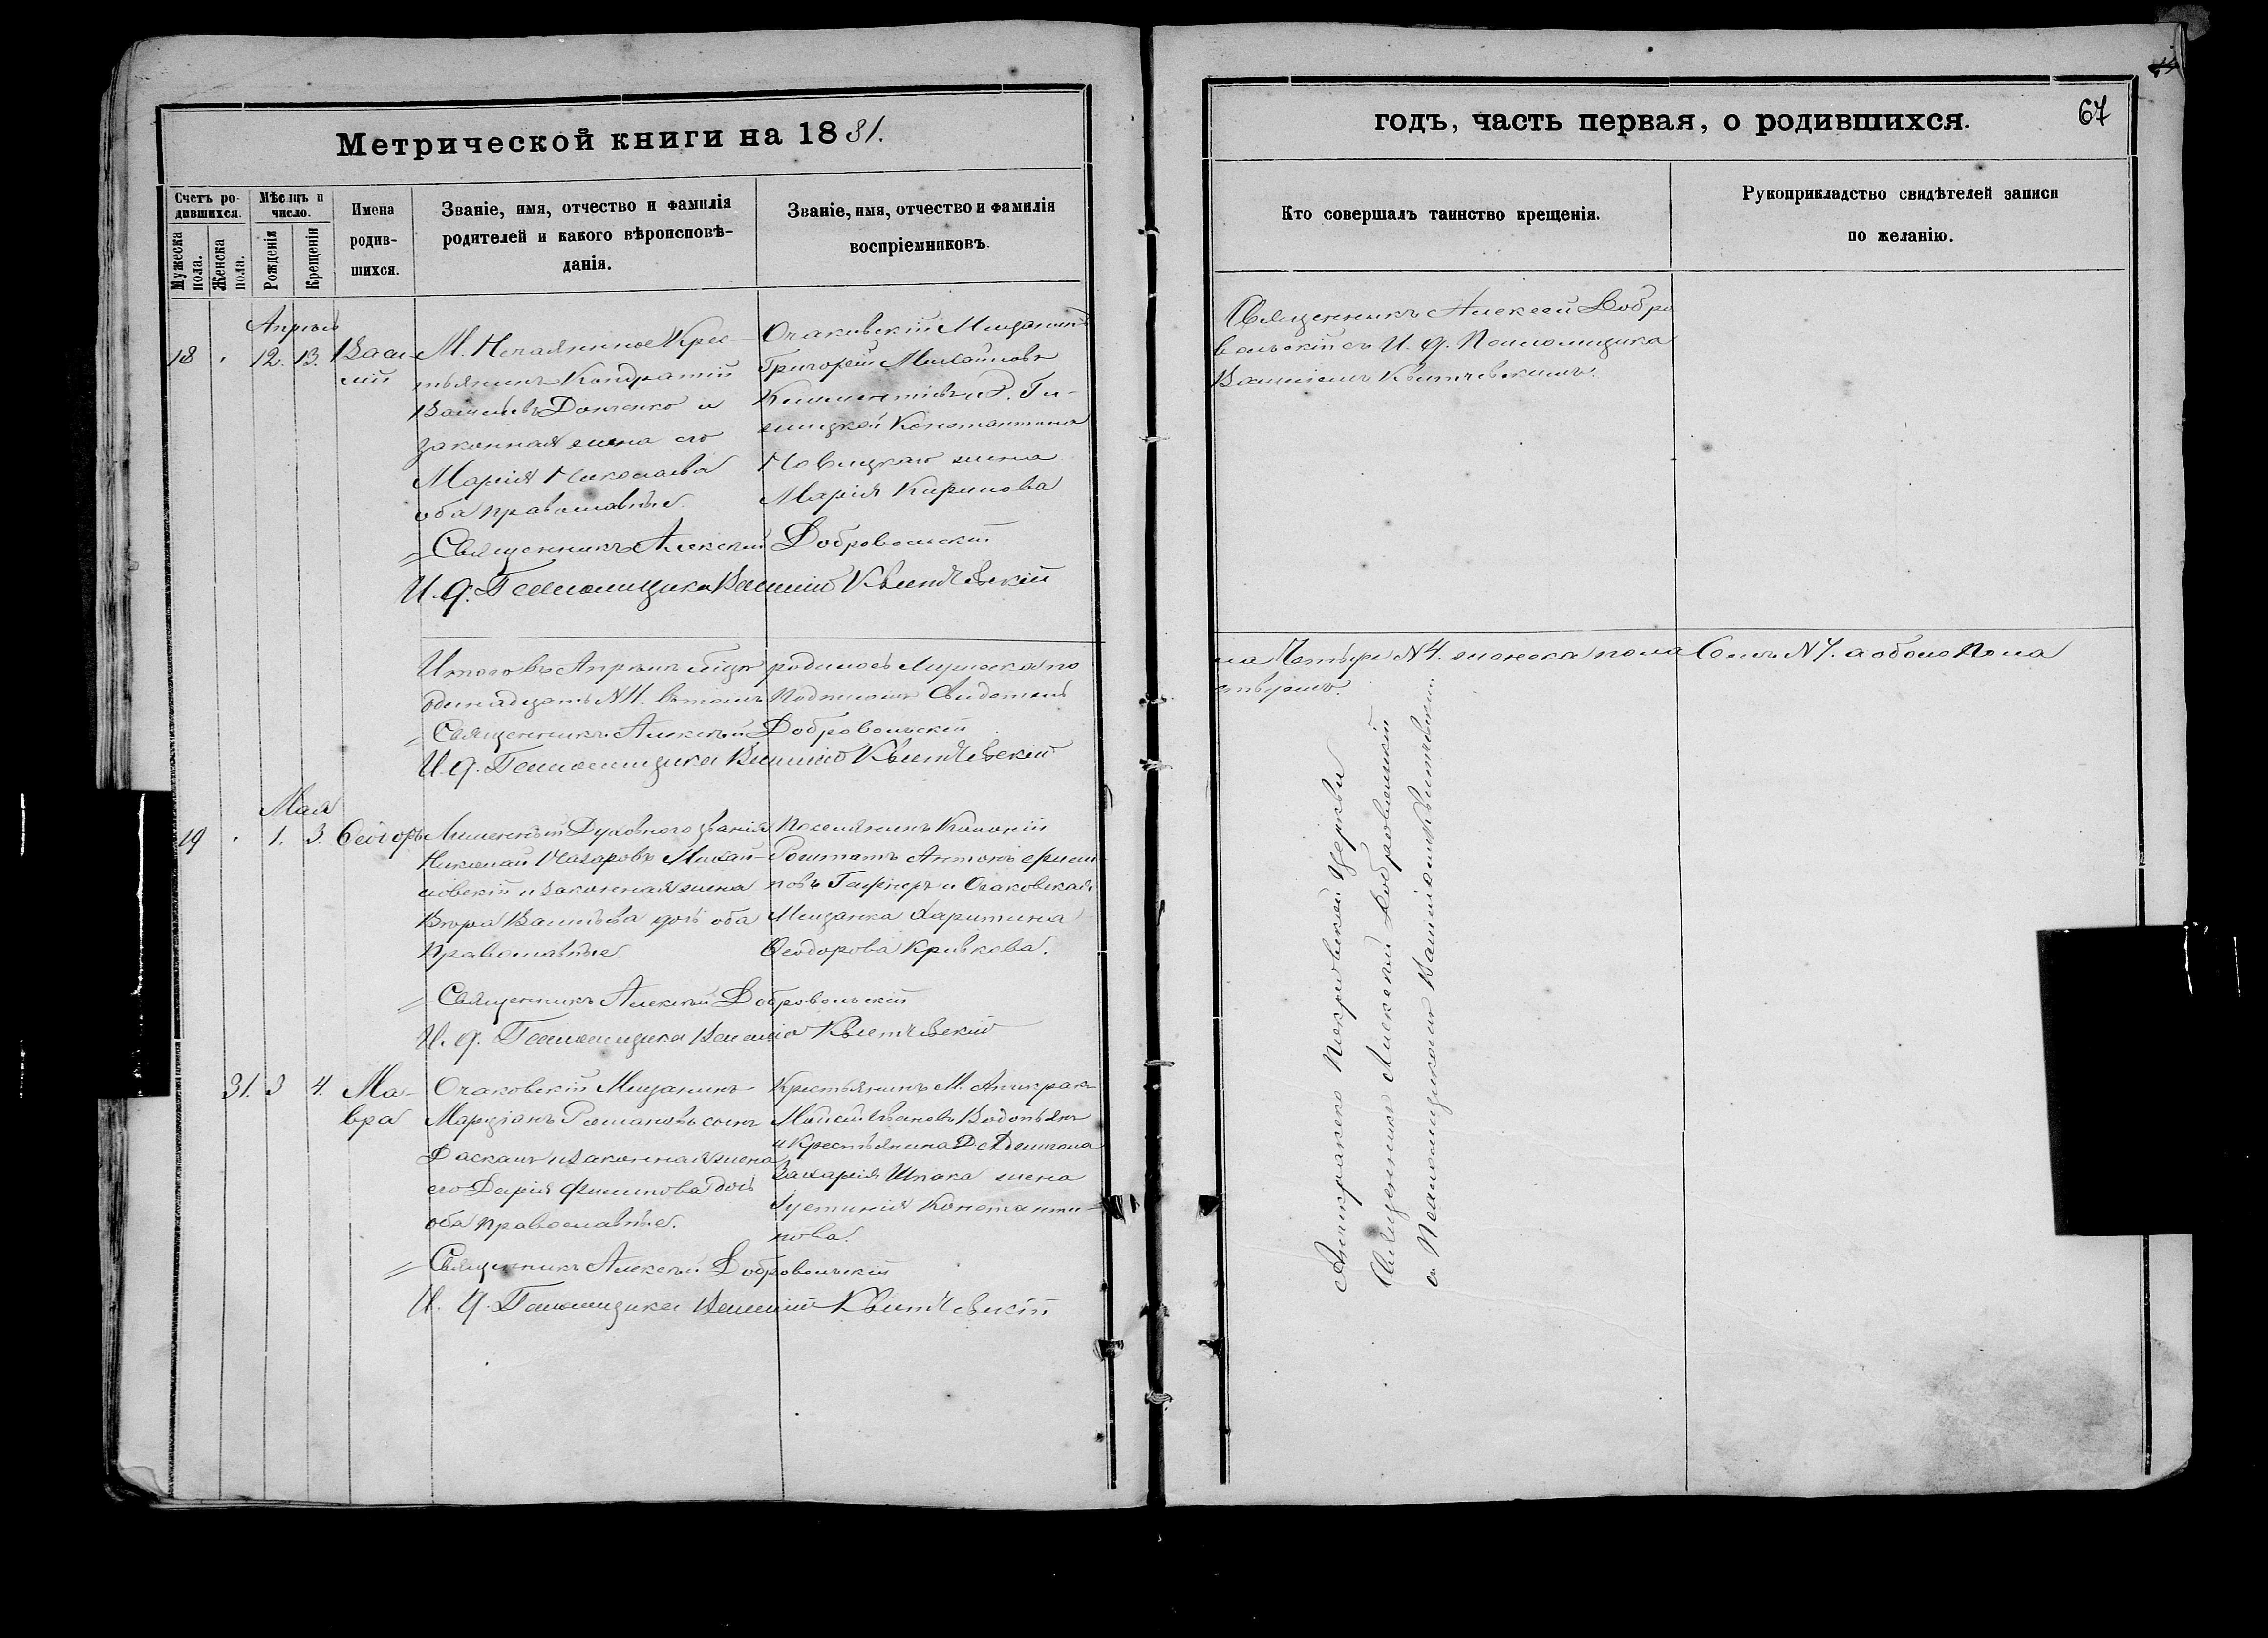 Метрической книги на 1881.
Счетъ ро-
дившихся.
Мѣсяцъ и
число.
Мужеска
пола.
Женска
пола.
Рожденія
Крещенія
Имена
родив-
шихся.
Званіе, имя, отчество и фамилія
родителей и какого вѣроисповѣ-
данія.
Званіе, имя, отчество и фамилія
воспріемниковъ.
Апрѣль
18 12. 13. Васи-
лій
М. Нечаянное Крес-
тьянинъ Кондратій
Васильевъ Донченко и
законная жена его
Марія Николаева
оба православные.
Очаковскій Мещанинъ
Григорій Михайловъ
Климентіевъ и
Константина
Новицкаго жена
Марія Кирилова
Священникъ Алексѣй Добровольскій
И. д. Псаломщика Василій Квитчевскій
Итого въ Апрѣлѣ мѣсяцѣ родилось Мужеска по
одинадцать N 11. въ томъ подписомъ Свидетель
Священникъ Алексѣй Добровольскій
И. д. Псаломщика Василій Квитчевскій
Мая
19 1. 3. Ѳеодоръ
Духовного званія
Николай Назаровъ Михай-
ловскій и законная жена
Васильева дочь оба
православные.
Поселянинъ Колоніи
Антонъ
и Очаковская
Мещанка Харитина
Ѳеодорова Кривкова.
Священникъ Алексѣй Добровольскій
И. д. Псаломщика Василій Квитчевскій
31. 3 4. Ма-
вра
Очаковскій Мещанинъ
Марціанъ Романовъ сынъ
и законная жена
его Дарія Филипова дочь
оба православные.
Крестьянинъ М. Анчикракъ
Мойсей Ивановъ Водопьянъ
и Крестьянина Д
Захарія Шпака жена
Іустинія Константи-
нова.
Священникъ Алексѣй Добровольскій
И. д. Псаломщика Василій Квитчевскій
годъ, часть первая, о родившихся.
67
Кто совершалъ таинство крещенія.
Рукоприкладство свидѣтелей записи
по желанію.
Священникъ Алексѣй Добро
вольскій съ И. д. Псаломщика
Василіемъ Квитчевскимъ.
ла Четыре N 4. женска пола Семь N 7. а обоего пола
Анчикракско Покровской Церкви
Священникъ Алексѣй Добровольскій
съ Псаломщикомъ Василіемъ Квитчевскимъ